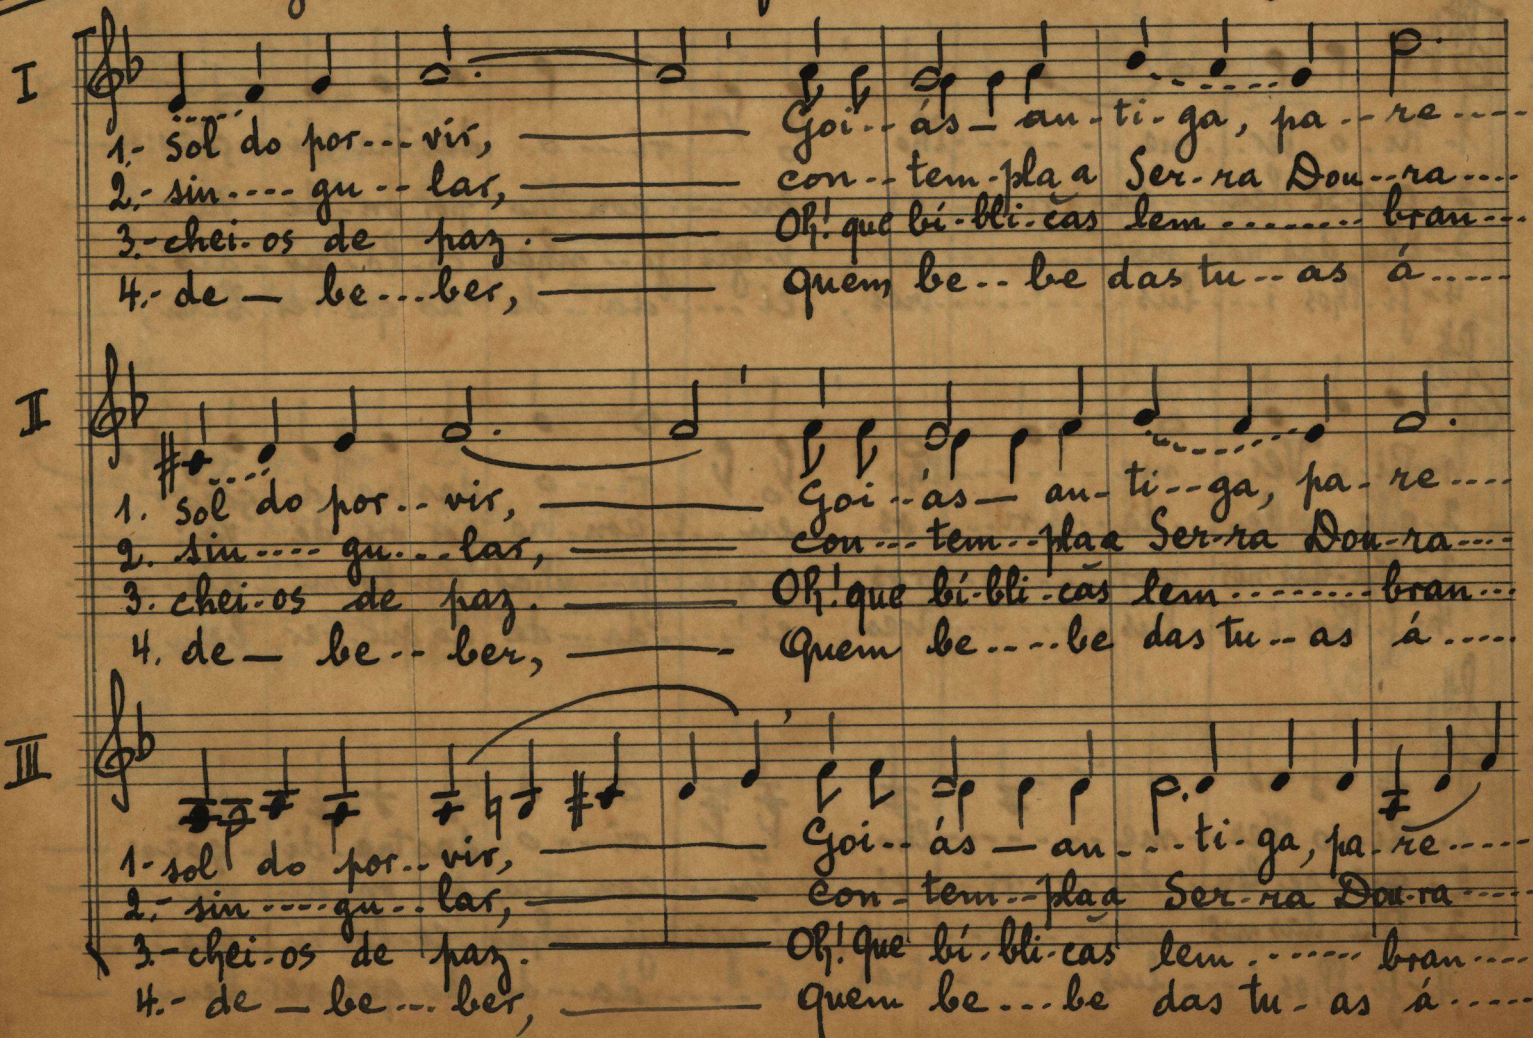 I
1.- sol do por---vir, Goi--ás — an-ti-ga, pa--re----
2.- sin----gu--lar, con--tem-pla a Ser-ra Dou--ra----
3.- chei-os de paz. Oh! que bí-bli-cas lem-------- bran---
4.- de — be---ber, Quem be--be das tu--as á-----
II
1. sol do por--vir, Goi--ás — an-ti--ga, pa-re----
2. sin----gu---lar, con---tem--pla a Ser-ra Dou-ra----
3. chei-os de paz. Oh! que bí-bli-cas lem--------bran---
4. de — be--ber, Quem be----be das tu--as á-----
III
1- sol do por--vir, Goi--ás — an---ti-ga, pa-re-----
2.- sin----gu--lar, con-tem--pla a Ser-ra Dou-ra----
3.- chei-os de paz. Oh! que bí-bli-cas lem-------bran----
4.- de — be---ber, Quem be---be das tu-as á-----